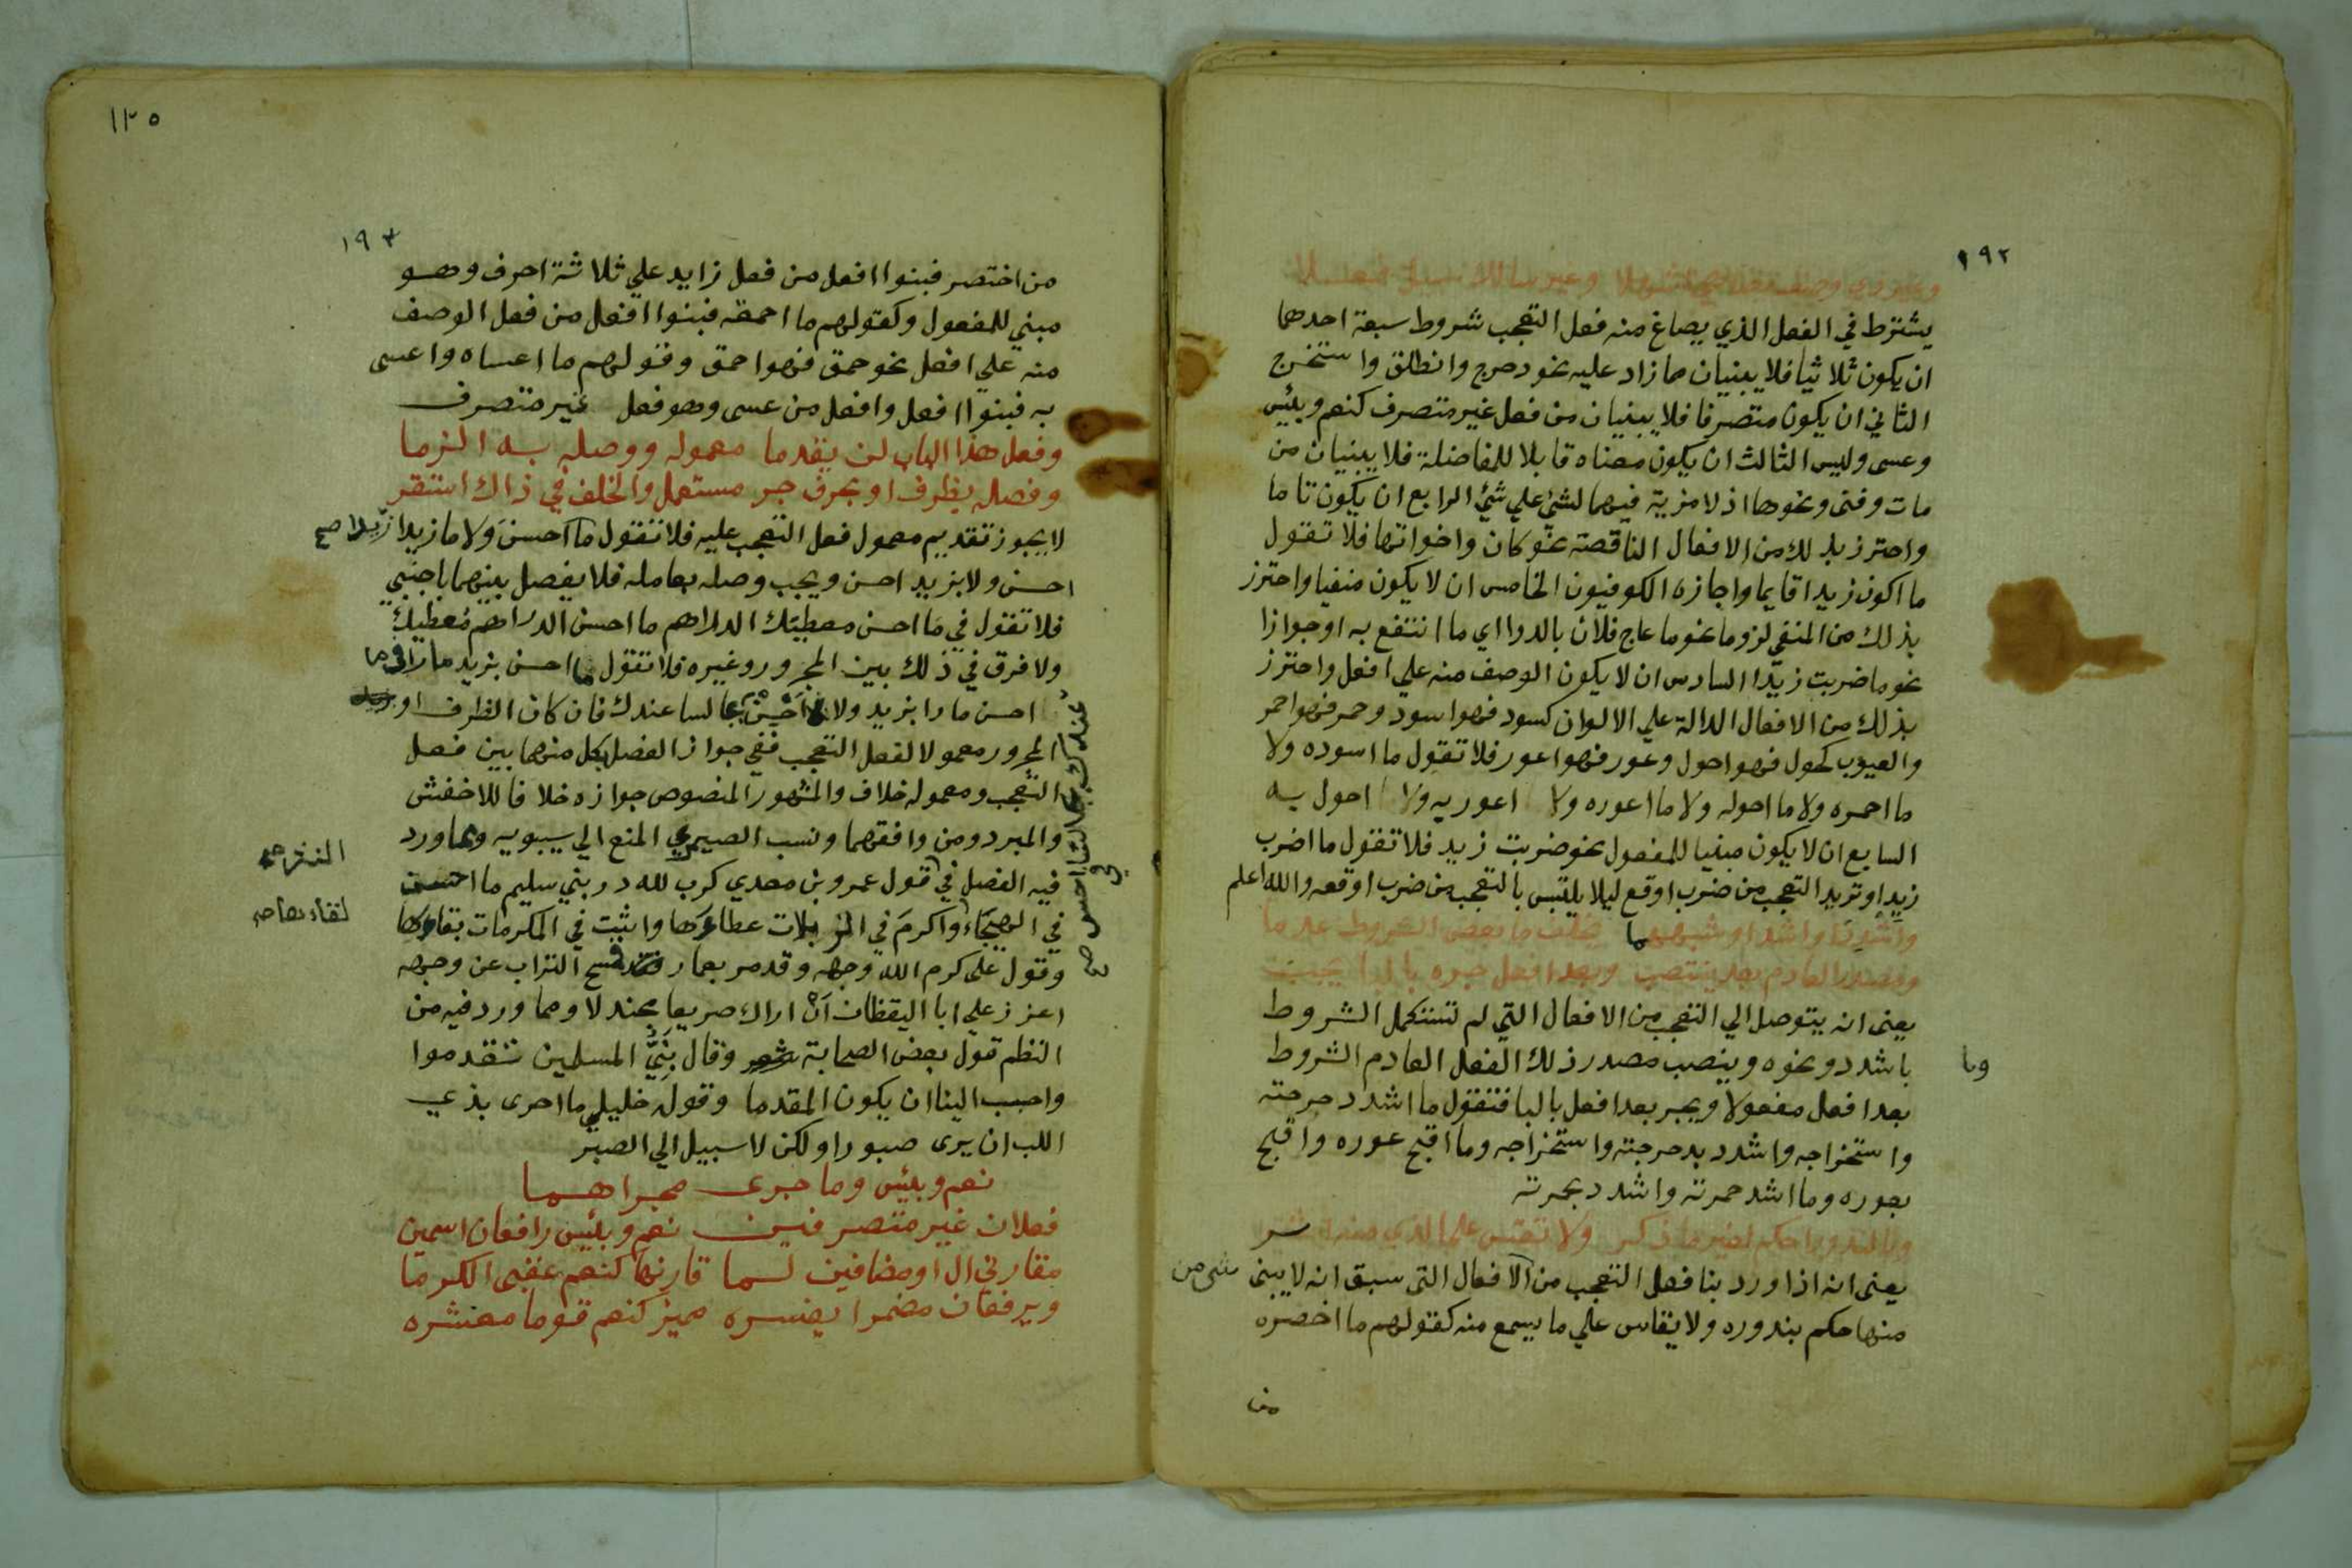 ١٩٢
وغير ذي وصف يضاهي اشهلا وغير سالك سبيل فعلا
يشترط في الفعل الذي يصاغ منه فعل التعجب شروط سبعة احدها
ان يكون ثلاثيا فلا يبنيان مما زاد عليه نحو دحرج وانطلق واستخرج
الثاني ان يكون متصرفا فلا يبنيان من فعل غير متصرف كنعم وبئس
وعسى وليس الثالث ان يكون معناه قابلا للمفاضلة فلا يبنيان من
مات وفنى ونحوها اذ لا مزية فيهما لشئ علي شئ الرابع ان يكون تاما
واحترز بذلك من الافعال الناقصة نحو كان واخواتها فلا تقول
ما اكون زيدا قايما واجازه الكوفيون الخامس ان لا يكون منفيا واحترز
بذلك من المنفي لزوما نحو ما عاج فلان بالدوا اي ما انتفع به او جوازا
نحو ما ضربت زيدا السادس ان لا يكون الوصف منه علي افعل واحترز
بذلك من الافعال الدالة علي الالوان كسود فهو اسود وحمر فهو احمر
والعيوب كحول فهو احول وعور فهو اعور فلا تقول ما اسوده ولا
ما احمره ولا ما احوله ولا ما اعوره ولا اعور به ولا احول به
السابع ان لا يكون مبنيا للمفعول نحو ضربت زيد فلا تقول ما اضرب
زيدا وتريد التعجب من ضرب اوقع ليلا يلتبس بالتعجب من ضرب اوقعه والله اعلم
واشدد او اشد او شبههما يخلف ما بعض الشروط عدما
ومصدر العادم بعد ينتصب وبعد افعل جره بالبا يجب
يعنى انه يتوصل الي التعجب من الافعال التي لم تستكمل الشروط
باشدد ونحوه وينصب مصدر ذلك الفعل العادم الشروط
وبا
بعد افعل مفعولا ويجر بعد افعل بالبا فتقول ما اشد دحرجته
واستخراجه واشدد بدحرجته واستخراجه وما اقبح عوره واقبح
بعوره وما اشد حمرته واشدد بحمرته
وبالندور احكم لغير ما ذكر ولا تقس على الذي منه اثر
يعنى انه اذا ورد بنا فعل التعجب من الافعال التى سبق انه لا يبنى شى من
منها حكم بندوره ولا يقاس علي ما يسمع منه كقولهم ما اخصره
من
١٢٥
١٩٣
من اختصر فبنوا افعل من فعل زايد علي ثلاثة احرف وهو
مبني للمفعول وكقولهم ما احمقه فبنوا افعل من فعل الوصف
منه علي افعل نحو حمق فهو احمق وقولهم ما اعساه واعسى
به فبنوا افعل وافعل من عسى وهو فعل غير متصرف
وفعل هذا الباب لن يقدما معموله ووصله به الزما
وفصله بظرف او بحرف جر مستعمل والخلف في ذاك استقر
لا يجوز تقديم معمول فعل التعجب عليه فلا تقول ما احسن ولا ما زيدا زيدا صح
احسن ولا بزيد احسن ويجب وصله بعامله فلا يفصل بينهما باجنبي
فلا تقول في ما احسن معطيك الدراهم ما احسن الدراهم معطيك
ولا فرق في ذلك بين المجرور وغيره فلا تقول ما احسن بزيد مارا في ما
احسن مارا بزيد ولا ما احسن جالسا عندك فان كان الظرف او
المجرور معمولا لفعل التعجب ففي جواز الفصل بكل منهما بين فعل
التعجب ومعموله خلاف والمشهور المنصوص جوازه خلافا للاخفش
والمبرد ومن وافقهما ونسب الصيمري المنع الي سيبويه ومما ورد
فيه الفصل في قول عمرو بن معدي كرب لله در بني سليم ما احسن
في الهيجاء واكرم في اللزبات عطاءها واثبت في المكرمات بقاءها
النثر صح
لقاءها صح
عندك جالسا احسن صح
وقول علي كرم الله وجهه وقد مر بعمار فمسح التراب عن وجهه
اعزز علي ابا اليقظان ان اراك صريعا مجندلا ومما ورد فيه من
النظم قول بعض الصحابة شعر وقال نبي المسلمين تقدموا
واحبب الينا ان يكون المقدما وقوله خليلي ما احرى بذي
اللب ان يرى صبورا ولكن لا سبيل الي الصبر
نعم وبئس وما جرى مجراهما
فعلان غير متصرفين نعم وبئس رافعان اسمين
مقارني ال او مضافين لما قارنها كنعم عقبى الكرما
ويرفعان مضمرا يفسره مميز كنعم قوما معشره